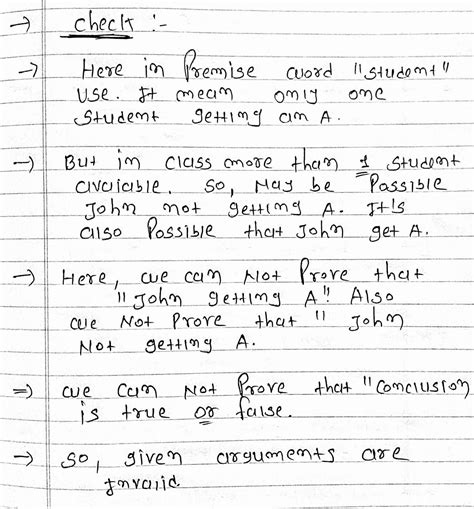 → Check :-
→ Here in Premise word "student"
use. It mean only one
student getting an A.
→ But in class more than 1 student
avaiable. So, May be Possible
John not getting A. It's
also Possible that John get A.
→ Here, we can Not Prove that
"John getting A". Also
we Not Prove that " John
Not getting A.
⇒ we can Not Prove that "Conclusion
is true or false.
→ so, given arguments are
Invalid